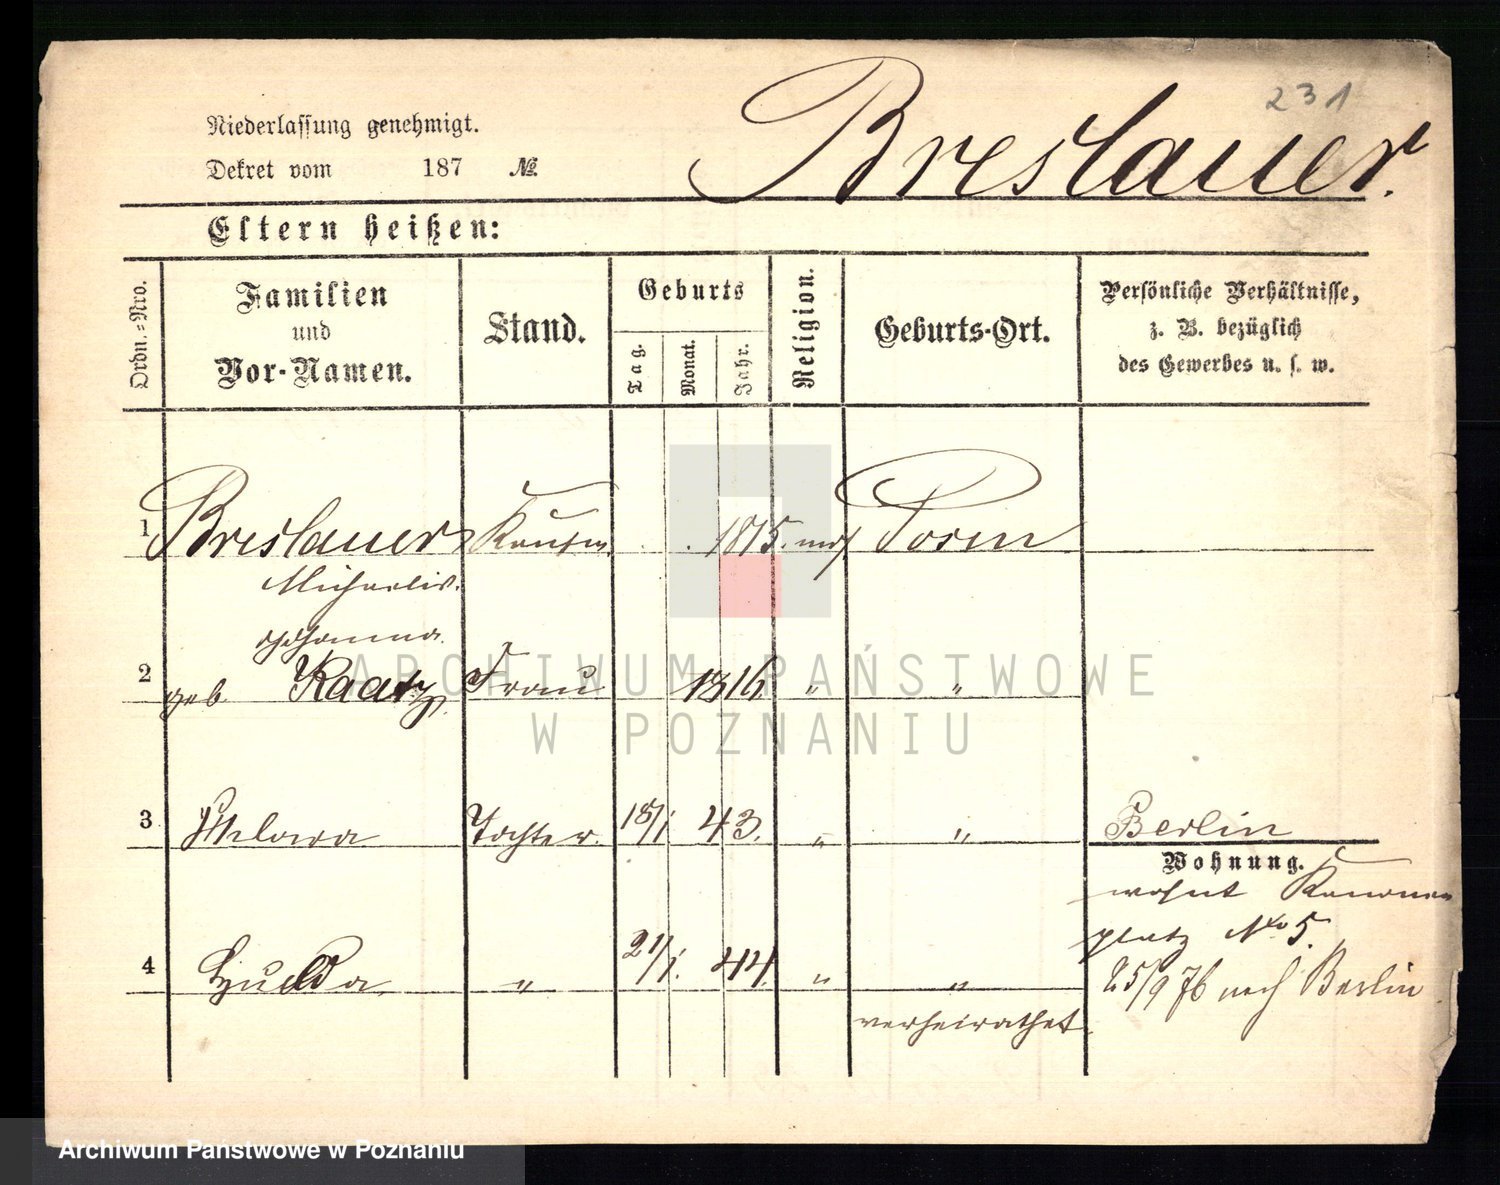 231
Niederlassung genehmigt.
Dekret vom 187 №
Breslauer.
Eltern heißen:
Ordn.=Nro.
Familien und Vor-Namen.
Stand.
Geburts
Tag. Monat. Jahr.
Religion.
Geburts-Ort.
Persönliche Verhältnisse,
z. B. bezüglich
des Gewerbes u. s. w.
1 Breslauer Kaufm. 1815. mos Posen
Michaelis.
Johanna
2 geb Kaatz. Frau 1816 " "
3 Tochter. 18/1 43. " " Berlin
Wohnung.
wohnt Kanonen
platz No 5.
4 Hulda " 21/1. 44. " "
25/9 76 nach Berlin
verheirathet.
ARCHIWUM PAŃSTWOWE
W POZNANIU
Archiwum Państwowe w Poznaniu